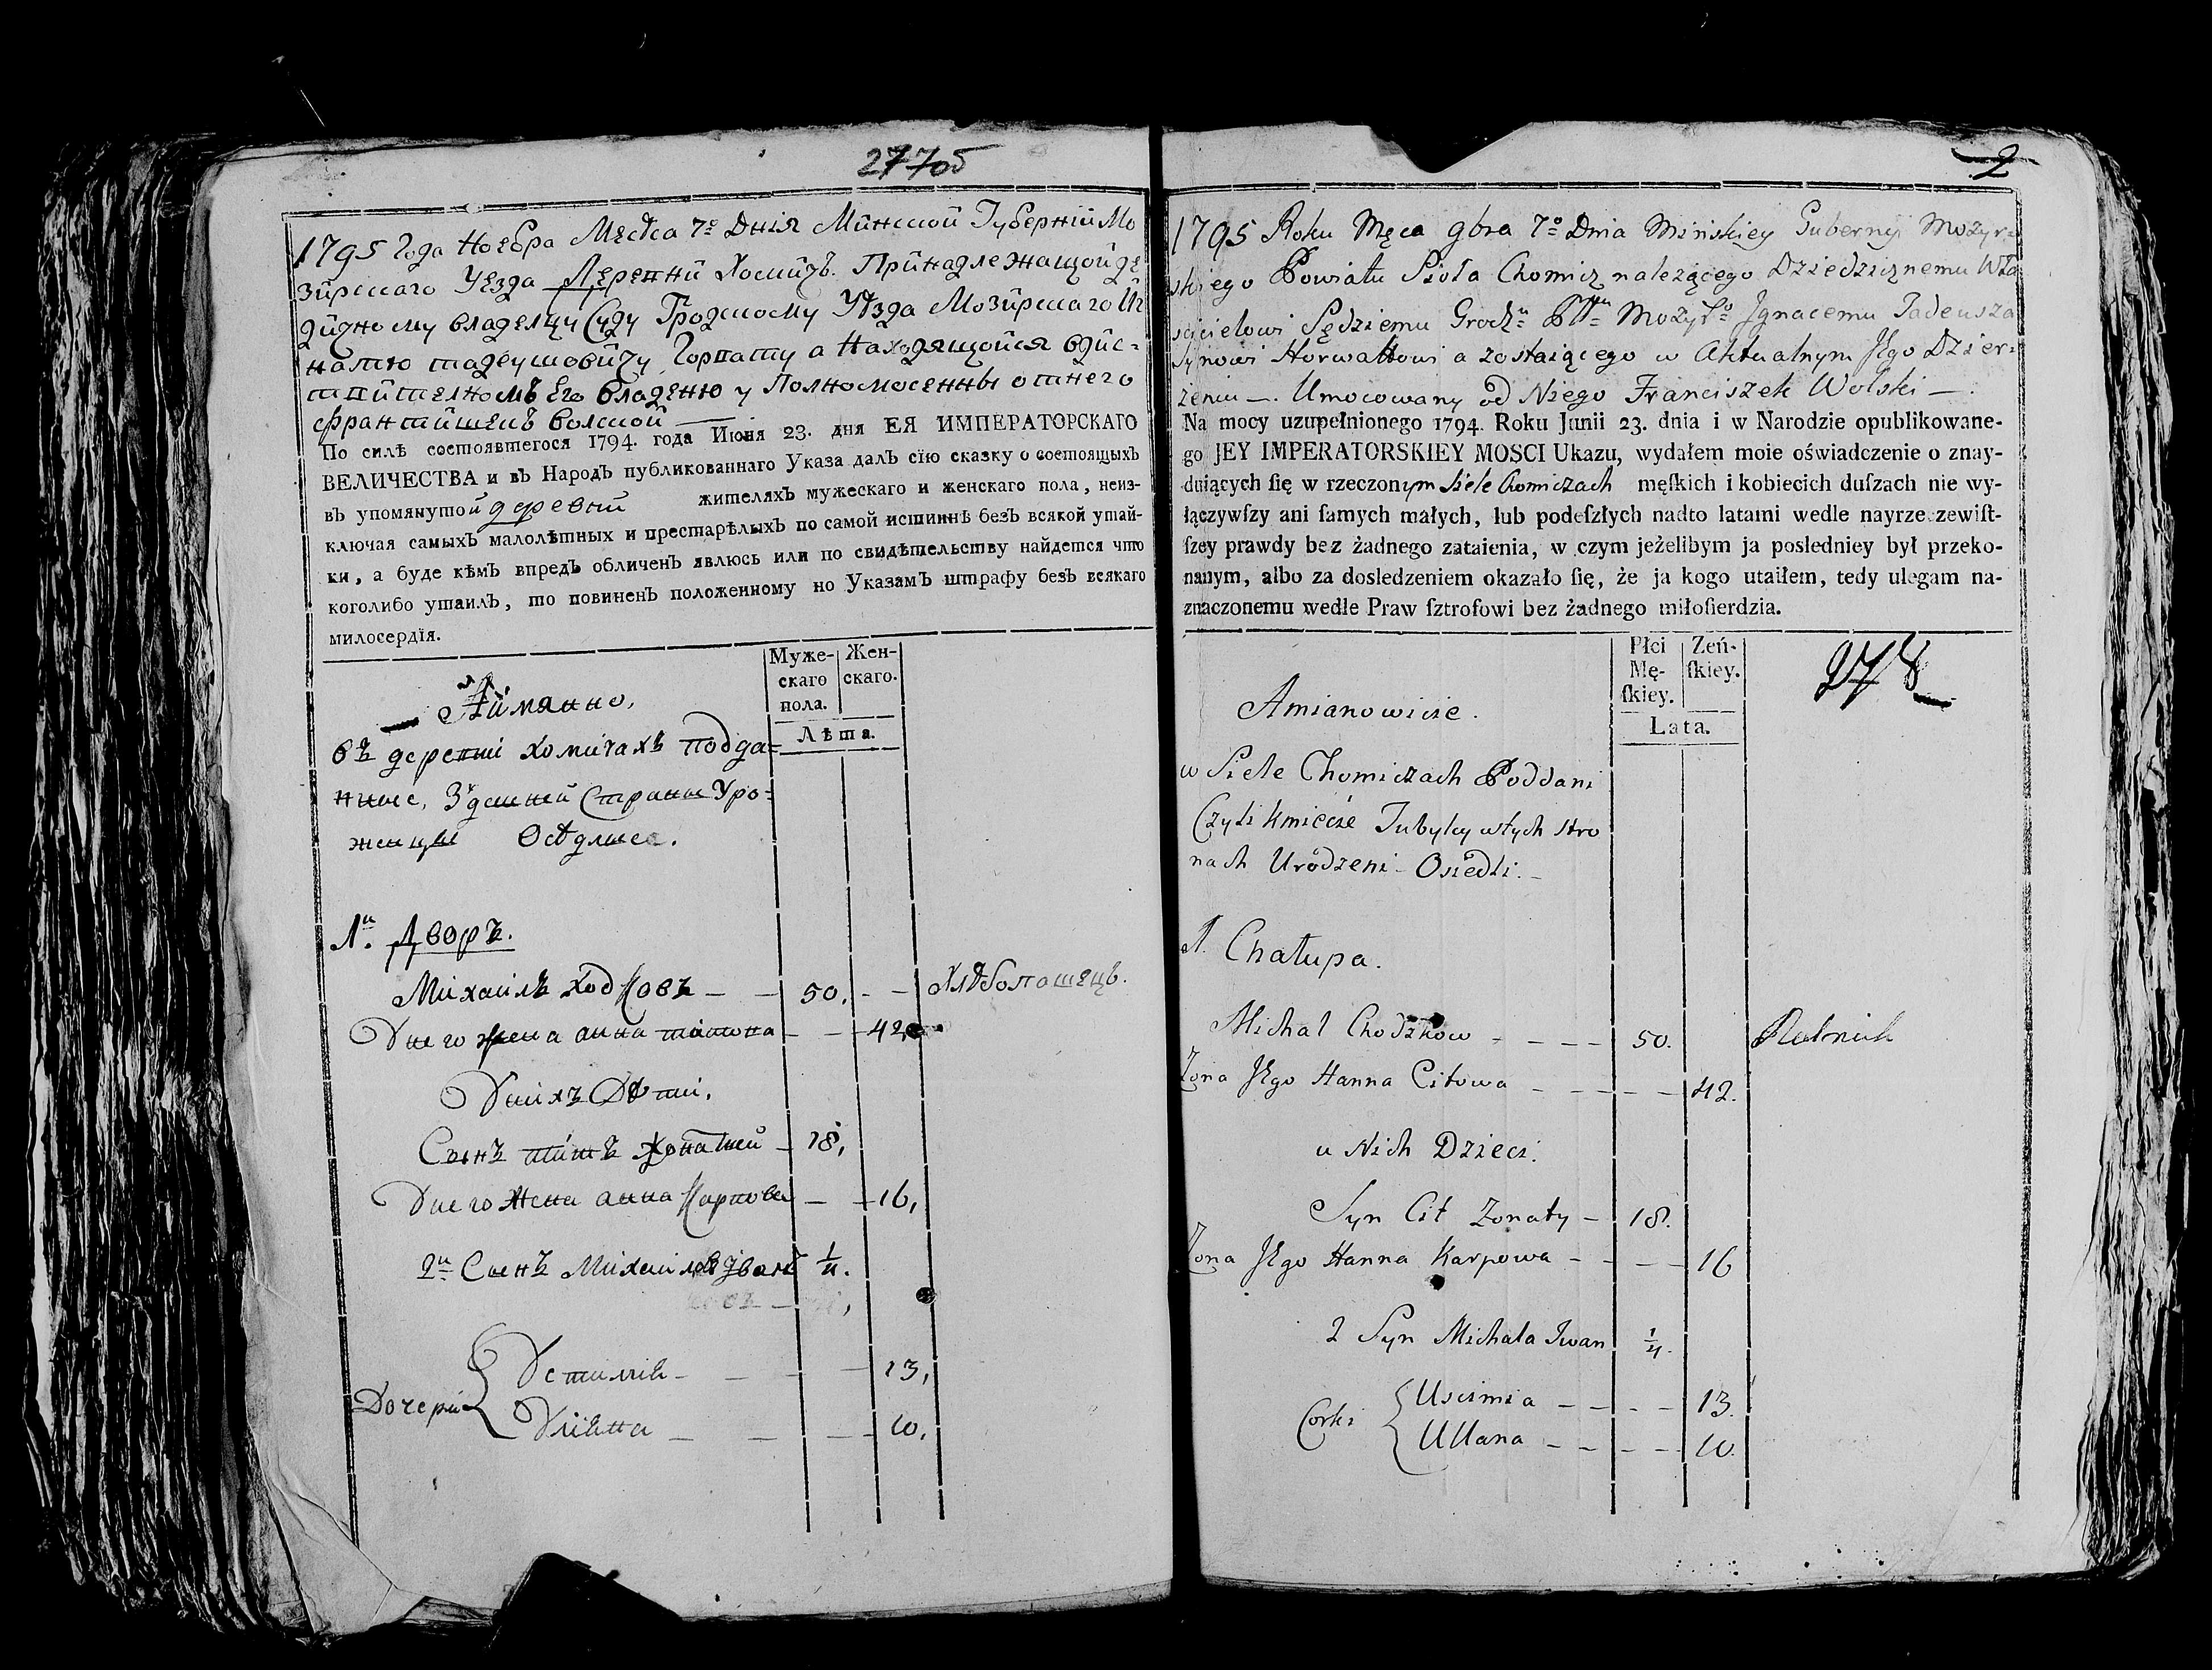 277об
1795 Года Ноебра Месѣца 7го Дния Минской Губернии Мо
зирскаго Уезда Деревни Хомичъ. Принадлежащой де
дичному владелцу Суду Гродскому Уѣзда Мозирскаго Иг
натю тадеушовичу Горвату а Находящойся вдис=
твителномъ Его владеню у Полномосенны отнего
францишекъ волской —
По силѣ состоявшегося 1794. года Июня 23. дня ЕЯ ИМПЕРАТОРСКАГО
ВЕЛИЧЕСТВА и въ Народъ публикованнаго Указа далъ сїю сказку о состоящыхъ
въ упомянутой деревни жителяхъ мужескаго и женскаго пола, неиз-
ключая самыхъ малолѣтныхъ и престарѣлыхъ по самой истиннѣ безъ всякой утай-
ки, а буде кѣмъ впредъ обличенъ явлюсь или по свидѣтельству найдется что
коголибо утаилъ, то повиненъ положенному по Указамъ штрафу безъ всякаго
милосердїя.
Муже-скаго пола. Жен-скаго.
Лѣта.
Аимянно,
въ деревни хомичахъ подда=
нные, Здешней Страны Уро=
женцы Осѣдлые.
1й. Дворъ.
Михаилъ ходковъ — — 50. — — хлѣбопашецъ.
Унего жена анна титова — — 42,
Унихъ Дѣти,
Сынъ титъ Жонатией — 18,
Унего жена анна Карпова — — 16,
2й Сынъ Михаиловъ Іванъ 1/4.
Дочери { Устимія — — — 13,
Уліяна — — — 10,
2
1795 Roku Męca 9bra 7o Dnia Mińskiey Gubernyi Mozyr=
skiego Powiatu Sioła Chomicz należącego Dziedzicznemu Wła
scicielowi Sędziemu Grodz= Pttu Mozyrgo Jgnacemu Tadeusza
Synowi Horwattowi a zostaiącego w Aktualnym Jego Dzier=
żeniu —. Umocowany od Niego Franciszek Wolski —.
Na mocy uzupełnionego 1794. Roku Junii 23. dnia i w Narodzie opublikowane-
go JEY IMPERATORSKIEY MOSCI Ukazu, wydałem moie oświadczenie o znay-
duiących ſię w rzeczonym Siele Chomiczach męſkich i kobiecich duſzach nie wy-
łączywſzy ani ſamych małych, lub podeſzłych nadto latami wedle nayrzeczewiſt-
ſzey prawdy bez żadnego zataienia, w czym jeżelibym ja posledniey był przeko-
nanym, albo za dosledzeniem okazało ſię, że ja kogo utaiłem, tedy ulegam na-
znaczonemu wedle Praw ſztrofowi bez żadnego miłoſierdzia.
Płci Mę-ſkiey. Zeń-ſkiey.
Lata.
278
Amianowicie.
w Siele Chomiczach Poddani
Czyli Kmiecie Tubylcy wtych stro
nach Urodzeni – Osiedli. –
1. Chałupa.
Michał Chodzkow – – – – 50. Rolnik
Zona Jego Hanna Citowa – – – – – 42.
u Nich Dzieci.
Syn Cit Zonaty – 18.
Zona Jego Hanna Karpowa – – – – 16
2 Syn Michała Jwan 1/4.
Corki { Uscimia – – – – 13.
Ullana – – – – 10.